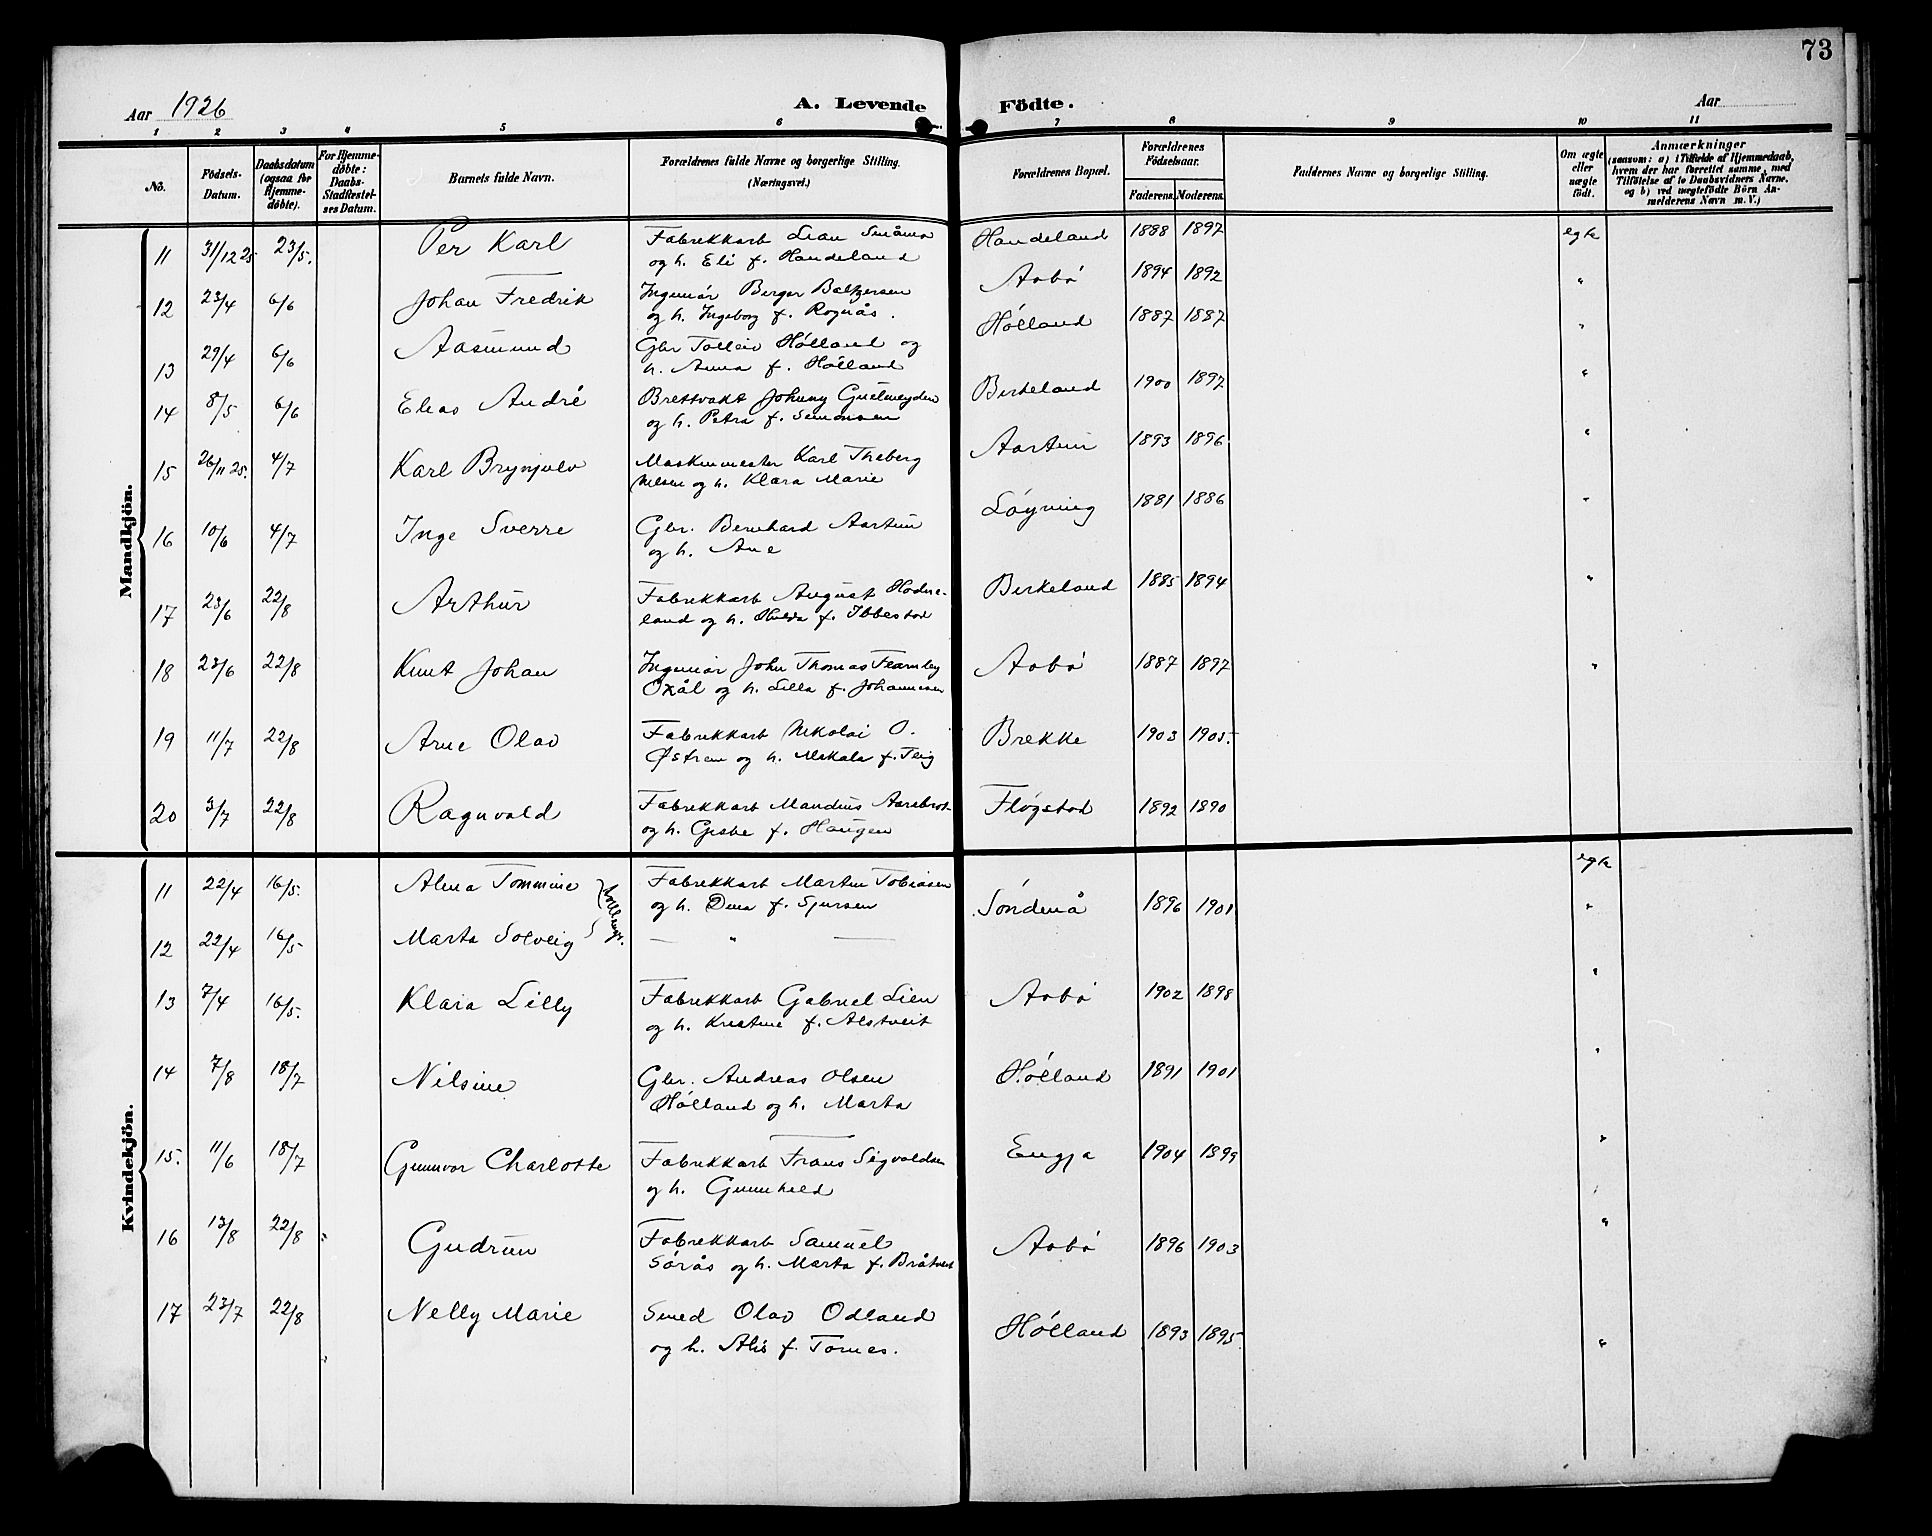 73
Aar 1926 A. Levende Födte. Aar
1 2 3 4 5 6 7 8 9 10 11
No. Födsels-Datum. Daabsdatum (ogsaa for Hjemme-döbte). For Hjemme-döbte: Daabs-Stadfæstel-ses Datum. Barnets fulde Navn. Forældrenes fulde Navne og borgerlige Stilling. (Næringsvei.) Forældrenes Bopæl. Forældrenes Födselsaar. Faderens. Moderens. Faddernes Navne og borgerlige Stilling. Om ægte eller uægte født. Anmærkninger (saasom: a) i Tilfælde af Hjemmedaab, hvem der har forrettet samme, med Tilföielse af to Daabsvidners Navne, og b) ved uægtefødte Börn An-melderens Navn m. V.)
Mandkjön.
11 31/12 25 23/5. Per Karl Fabrikkarb Lian Småmo Handeland 1888 1897 egte
og h. Eli f. Handeland
12 23/4 6/6 Johan Fredrik Ingeniør Berger Baltzersen Aabø 1894 1892 "
og h. Ingeborg f. Rognås.
13 29/4 6/6 Aasmund Gbr Tolleiv Hølland og Hølland 1887 1887 "
h. Anna f. Hølland
14 8/5 6/6 Elias André Brettvakt Johnny Birkeland 1900 1897 "
og h. Petra f. Simonsen
15 26/11 25. 4/7 Karl Brynjulv Maskinmester Karl Theberg Aartun 1893 1896 "
Nilsen og h. Klara Marie
16 10/6 4/7 Inge Sverre Gbr. Bernhard Aartun Løyning 1881 1886 "
og h. Ane
17 23/6 22/8 Arthur Fabrikkarb August Birkeland 1885 1894 "
land og h. Hulda f. Ibbestad
18 23/6 22/8 Knut Johan Ingeniør John Thomas Flamley Aabø 1887 1897 "
Oxål og h. Lilla f. Johannesen
19 11/7 22/8 Arne Olav Fabrikkarb Nikolai O. Brekke 1903 1905.
Østrem og h. f. Teig
20 3/7 22/8 Ragnvald Fabrikkarb Mandius Aarebrot Fløgstad 1892 1890
og h. Giske f. Haugen
Kvindekjön.
11 22/4 16/5. Alma Tommine Fabrikkarb Martin Tobiasen Søndenå 1896 1901 egte
og h. Dina f. Sjursen "
12 22/4 16/5 Marta Solveig — " —
13 7/4 16/5. Klara Lilly Fabrikkarb Gabriel Lien Aabø 1902 1898 "
og h. Kristine f. Alstveit
14 7/8 18/7 Nilsine Gbr. Andreas Olsen Hølland 1891 1901 "
Hølland og h. Marta
15. 11/6 18/7 Gunnvor Charlotte Fabrikkarb Frans Sigvaldsen Engja 1904 1899 "
og h. Gunnhild
16 13/8 22/8 " Gudrun Fabrikkarb Samuel Aabø 1896 1903 "
Sørås og h. Marta f. Bråtveit
17 23/7 22/8 Nelly Marie Smed Olav Odland Hølland 1893 1895. "
og h. Alis f. Tornes.